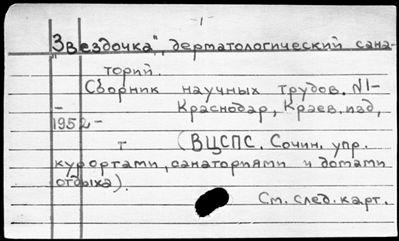 -1
"Звездочка", дерматологический сана-
торий.
Сборник научных трудов. N1-
- Краснодар, Краев. изд,
1952-
т (ВЦСПС. Сочин. упр.
курортами, санаториями и домами
отдыха).
См. след. карт.